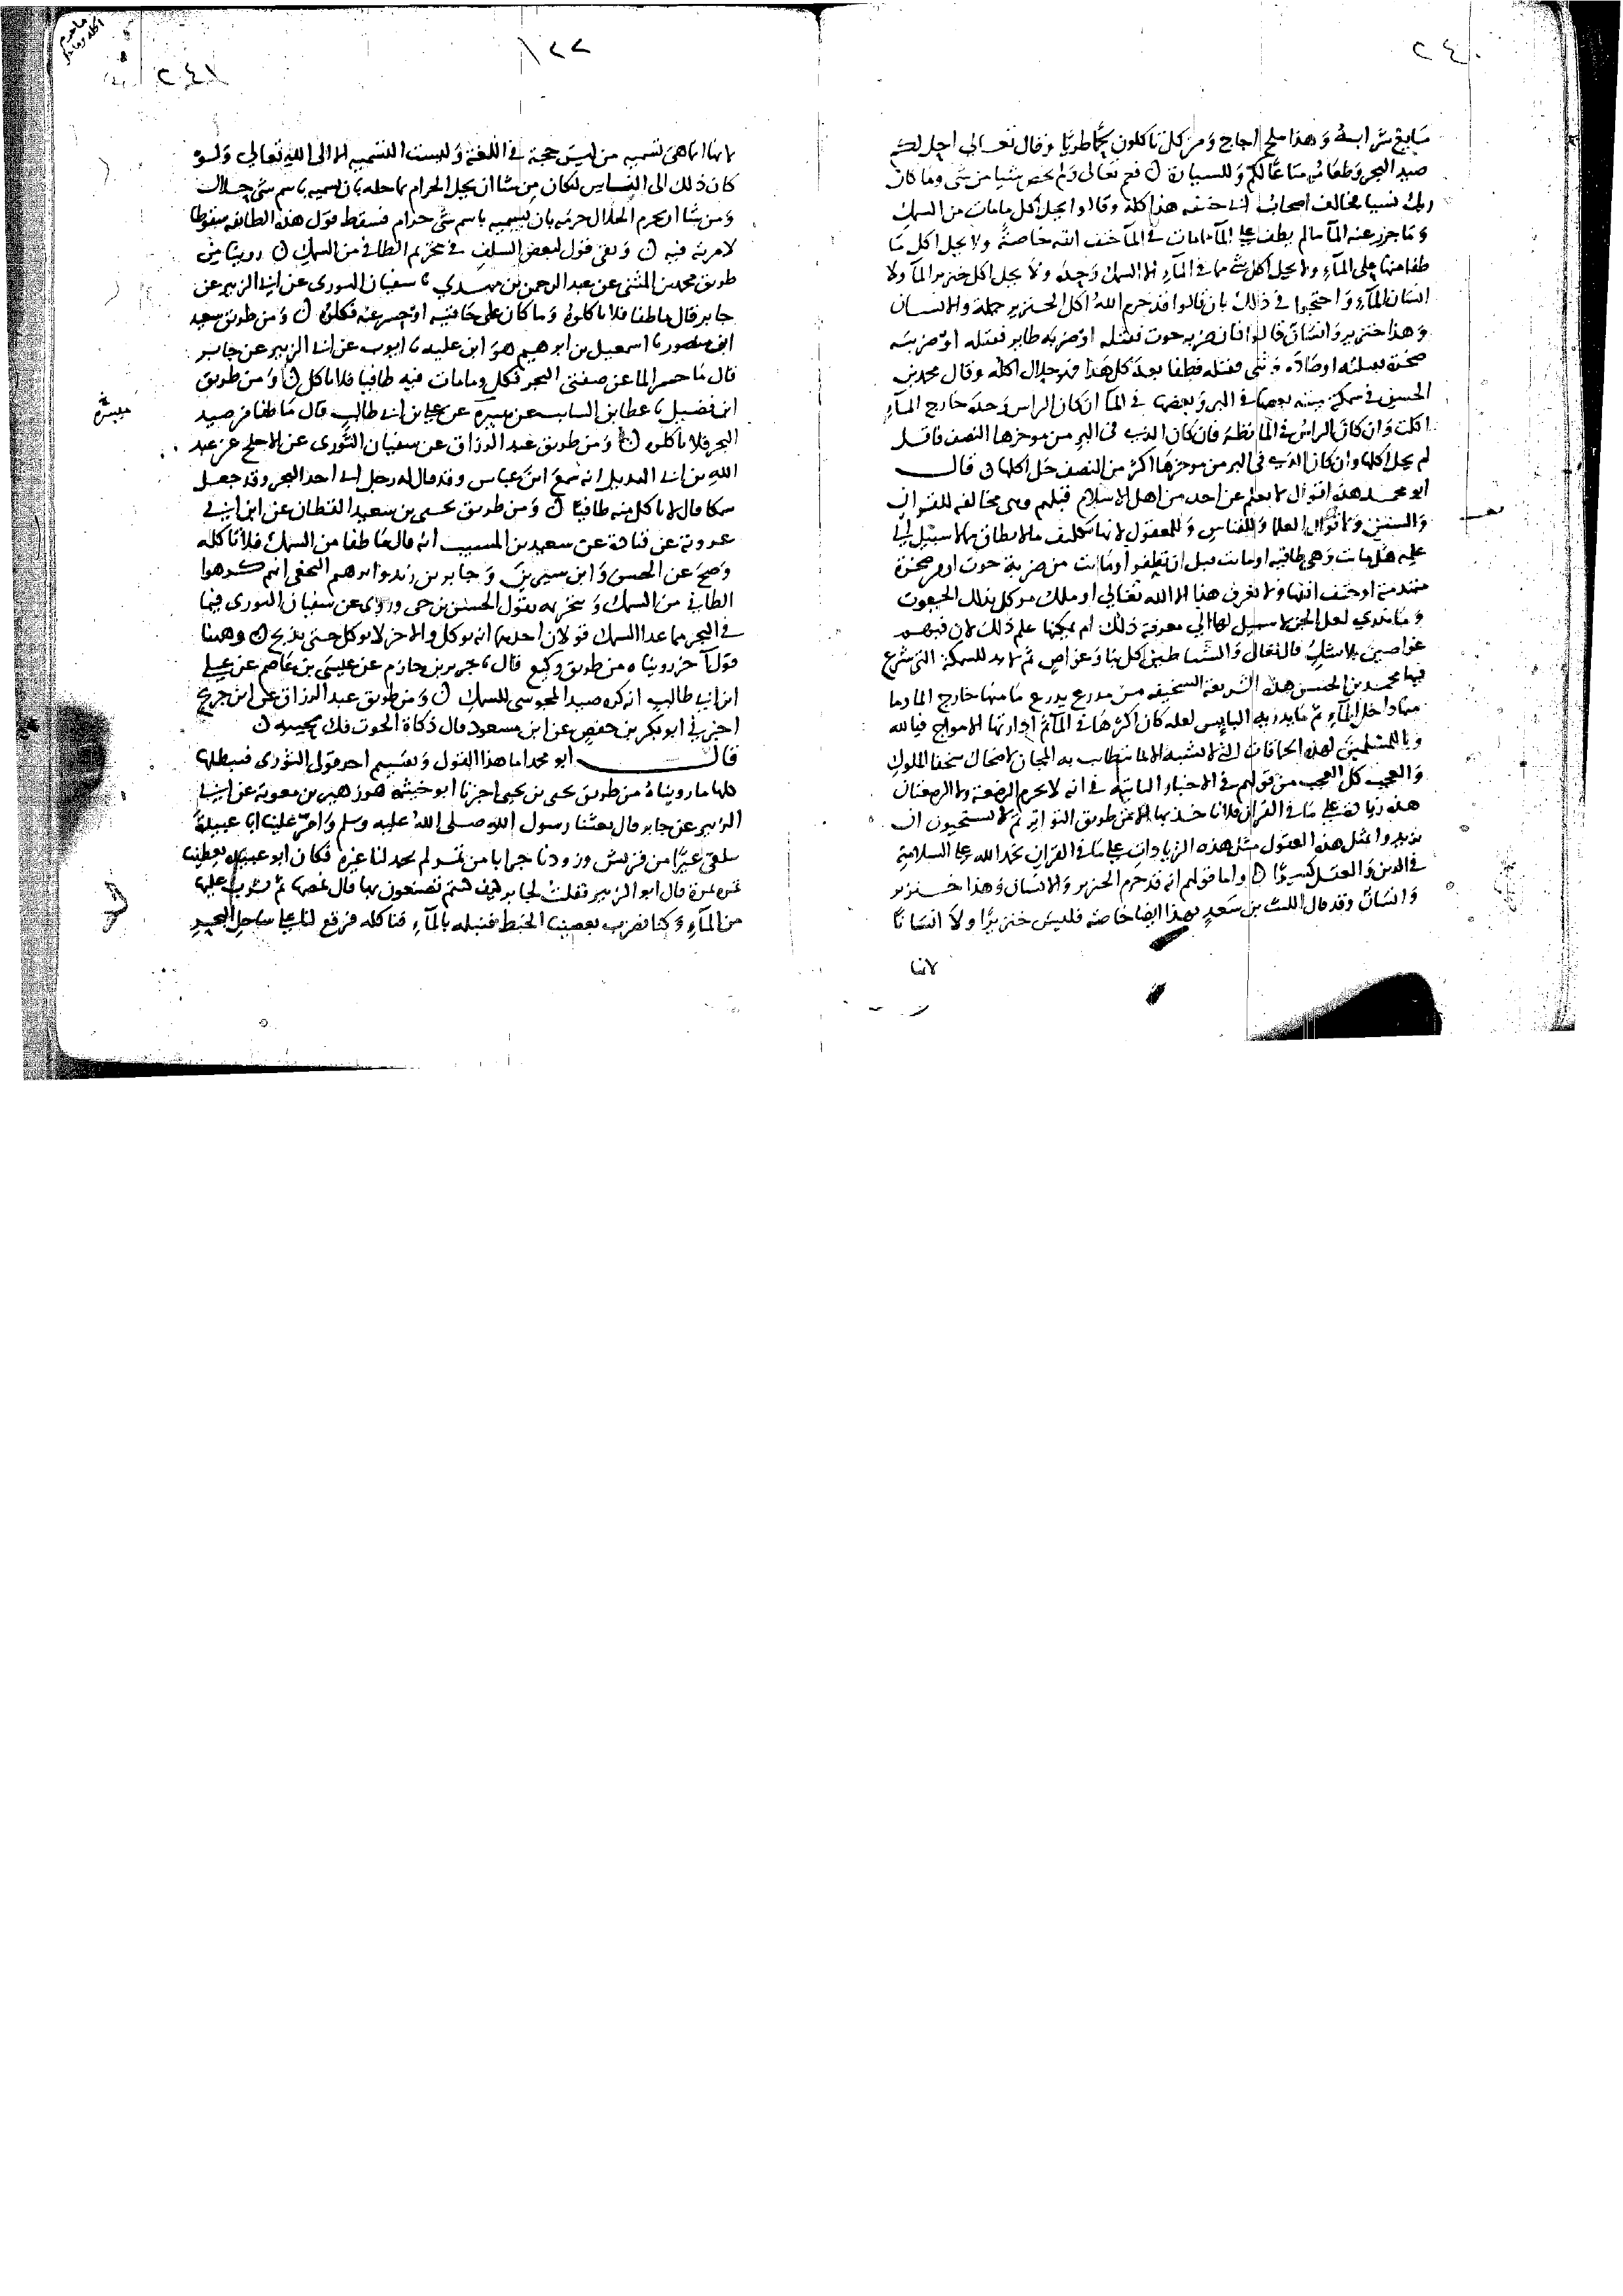 ٢٤٠
سايغ شرابه وهذا ملح اجاج ومن كل تاكلون لحما طريا وقال تعالى احل لكم
صيد البحر وطعامه متاعا لكم وللسيارة فعم تعالى ولم يخص شيا من شى وما كان
ربك نسيا فخالف اصحاب ابى حنيفه هذا كله وقالوا يحل اكل ما مات من السمك
وما جزر عنه الما مالم يطف على الما مامات فى الما حتف انفه خاصة ولا يحل اكل ما
طفا منها على الماء ولا يحل اكل شى مما فى الماء الا السمك وحده ولا يحل اكل خنزير الما ولا
انسان الماء واحتجوا فى ذلك بان قالوا قد حرم الله اكل الخنزير جملة والانسان
وهذا خنزير وانسان قالوا فان ضربه حوت فقتله او ضربه طاير فقتله او ضربته
صخرة فقتلته او صاده وثنى فقتله فطفا بعد كل هذا فهو حلال اكله وقال محمد بن
الحسن فى سمكة ميته بعضها فى البر وبعضها فى الما ان كان الراس وحده خارج الماء
اكلت وان كان الراس فى الما نظر فان كان الذى فى البر من موخرها النصف فاقل
لم يحل اكلها وان كان الذى فى البر من موخرها اكثر من النصف حل اكلها قال
ابو محمد هذه اقوال لا تعلم عن احد من اهل الاسلام قبلهم وهى مخالفه للقران
والسنن ولاقوال العلما وللقياس وللمعقول لانها تكليف ما لا يطاق مما لا سبيل الى
علمه هل ماتت وهى طافيه او ماتت قبل ان تطفو او ماتت من ضربة حوت او من صخرة
منهدمة او حتف انفها ولا يعرف هذا الا الله تعالى او ملك موكل بذلك الحوت
وما ندرى لعل الجن لا سبيل لها الى معرفة ذلك ام يمكنها علم ذلك لان فيهم
غواصين بلا شك قال تعالى والشياطين كل بنا وغواص ثم لا بد للسمكة التى شرع
فيها محمد بن الحسن هذه الشريعة السخيفه من مذرع يذرع ما منها خارج الما وما
منها داخل الماء ثم ما يدريه البايس لعله كان اكثرها فى الماء ثم ادارتها الامواج فيا لله
ويا للمسلمين لهذه الحماقات التى لا تشبه الا ما يتطايب به المجان لاضحاك سخفا الملوك
والعجب كل العجب من قولهم فى الاخبار الثابته فى انه لا يحرم الرضعة ولا الرضعتان
هذه زيادة على ما فى القران فلا ناخذ بها الا من طريق التواتر ثم لا يستحيون ان
يزيدوا بمثل هذه العقول مثل هذه الزيادات على ما فى القران نحمد الله على السلامة
فى الدين والعقل كثيرا واما قولهم انه قد حرم الخنزير والانسان وهذا خنزير
وانسان وقد قال الليث بن سعد بهذا ايضا خاصه فليس خنزيرا ولا انسانا
لانها
١٢٢
٢٤١
لانها انما هى تسميه من ليس حجة فى اللغة وليست التسميه الا الى الله تعالى ولو
كان ذلك الى الناس لكان من شا ان يحل الحرام احله بان يسميه باسم شى حلال
ومن شا ان يحرم الحلال حرمه بان يسميه باسم شى حرام فسقط قول هذه الطايفه سقوطا
لا مرية فيه وبقى قول لبعض السلف فى تحريم الطافى من السمك روينا من
طريق محمد بن المثنى عن عبد الرحمن بن مهدى نا سفيان الثورى عن ابى الزبير عن
جابر قال ما طفا فلا تاكلوه وما كان على حافتيه او حسر عنه فكلوه ومن طريق سعيد
ابن منصور نا اسمعيل بن ابرهيم هو ابن عليه نا ايوب عن ابى الزبير عن جابر
قال ما حسر الما عن ضفتى البحر فكل وما مات فيه طافيا فلا تاكل ومن طريق
ابن فضيل نا عطا بن السايب عن ميسرة عن على بن ابى طالب قال ما طفا من صيد
ميسرة
البحر فلا تاكلوه ومن طريق عبد الرزاق عن سفيان الثورى عن الاجلح عن عبد
الله بن ابى الهذيل انه سمع ابن عباس وقد قال له رجل انى اجد البحر وقد جعل
سمكا قال لا تاكل منه طافيا ومن طريق يحيى بن سعيد القطان عن ابن ابى
عروبة عن قتادة عن سعيد بن المسيب انه قال ما طفا من السمك فلا تاكله
وصح عن الحسن وابن سيرين وجابر بن زيد وابرهيم النخعى انهم كرهوا
الطافى من السمك وبتحريمه يقول الحسن بن حى وروى عن سفيان الثورى فيما
فى البحر مما عدا السمك قولان احدهما انه يوكل والاخر لا يوكل حتى يذبح وههنا
قول اخر رويناه من طريق وكيع قال نا جرير بن حازم عن عيسى بن عاصم عن على
ابن ابى طالب انه كره صيد المجوسى للسمك ومن طريق عبد الرزاق عن ابن جريج
اخبرنى ابو بكر بن حفص عن ابن مسعود قال ذكاة الحوت فك لحييه
قال ابو محمد اما هذا القول وتقسيم احد قولى الثورى فيبطلها
كلها ما رويناه من طريق يحيى بن يحيى اخبرنا ابو خيثمة هو زهير بن معوية عن ابى
الزبير عن جابر قال بعثنا رسول الله صلى الله عليه وسلم وامر علينا ابا عبيدة
نتلقى عيرا من قريش وزودنا جرابا من تمر لم يجد لنا غيره فكان ابو عبيدة يعطينا
تمره تمرة قال ابو الزبير فقلت لجابر كيف كنتم تصنعون بها قال نمصها ثم نشرب عليها
من الماء وكنا نضرب بعصينا الخبط فنبله بالماء فناكله فرفع لنا على ساحل البحر